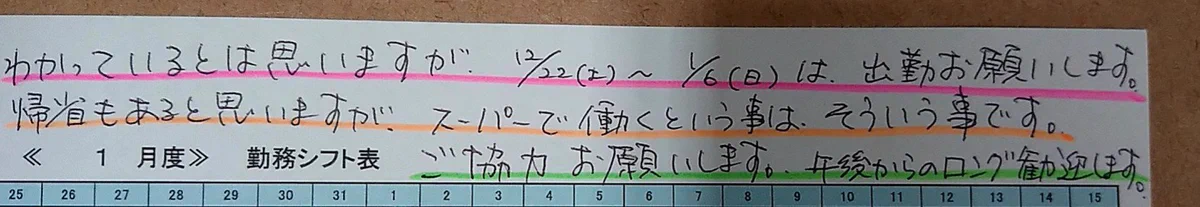 わかっているとは思いますが、12/22(土)〜1/6(日)は、出勤お願いします。
帰省もあると思いますが、スーパーで働くという事は、そういう事です。
≪ 1 月度≫ 勤務シフト表 ご協力お願いします。午後からのロング勧迎します。
25 26 27 28 29 30 31 1 2 3 4 5 6 7 8 9 10 11 12 13 14 15